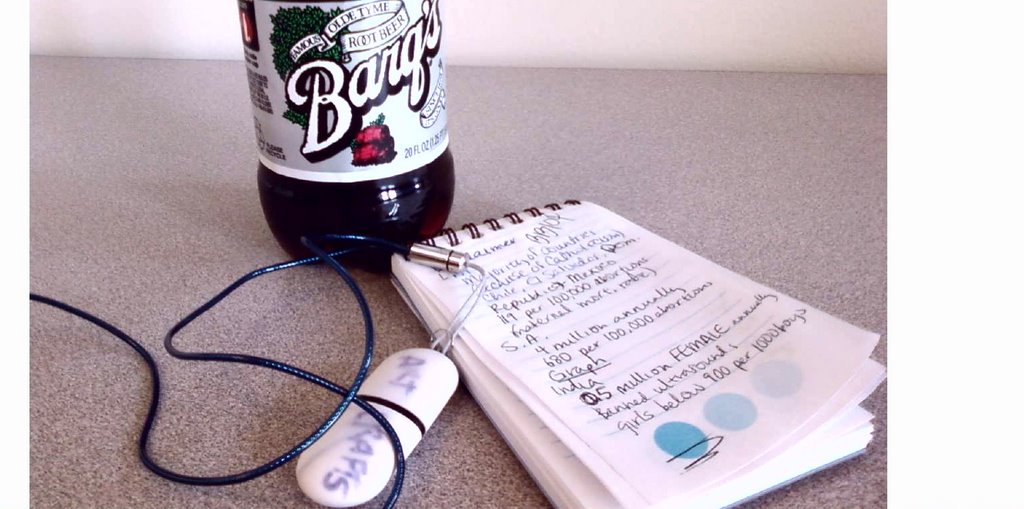 FAMOUS OLDE TYME
ROOT BEER
Barq's
SINCE
PLEASE
RECYCLE
20 FL OZ
majority of countries
Chile, El Salvador, Dom.
Republic, Mexico
119 per 100,000 abortions
maternal mort. rate)
S.A.
4 million annually
680 per 100,000 abortions
Graph
India
0.5 million FEMALE annually
Banned ultrasounds
girls below 900 per 1000 boys